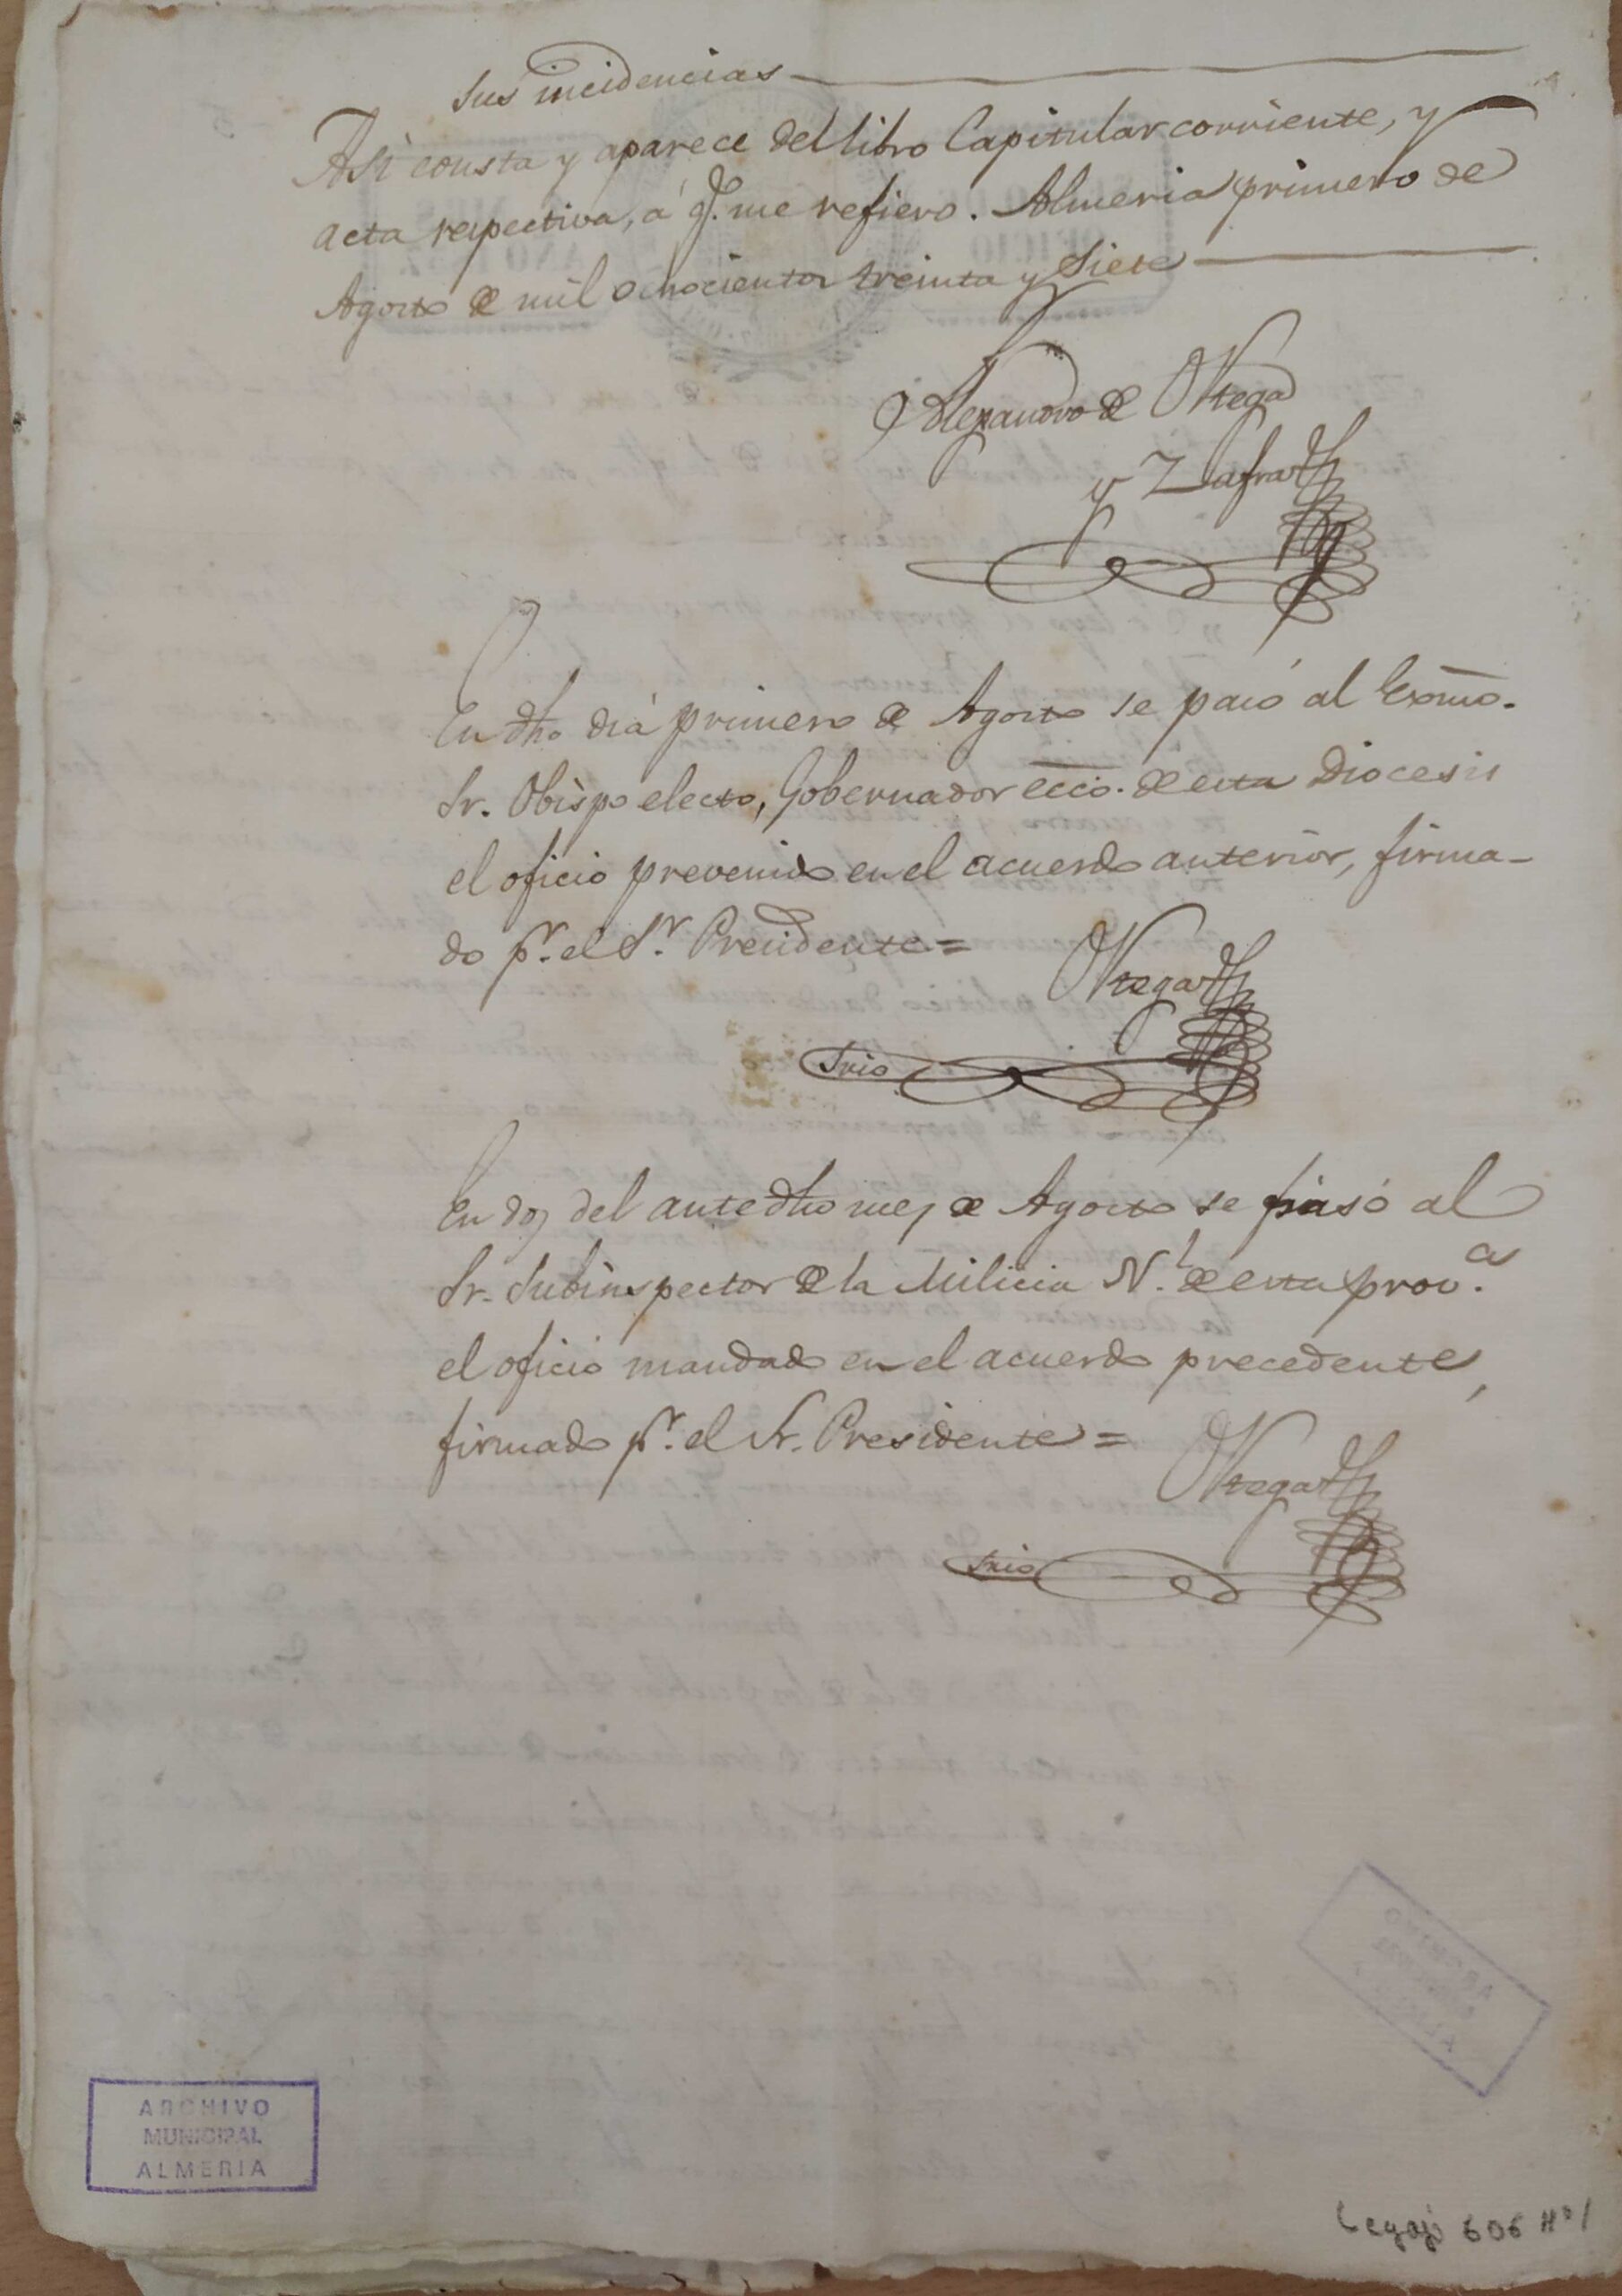 sus incidencias
Asi consta y aparece del libro Capitular corriente, y
acta respectiva, á q. me refiero. Almeria primero de
Agosto de mil ochocientos treinta y siete
Alejandro de Ortega
y Zafra
En dho dia primero de Agosto se pasó al Exmo.
Sr. Obispo electo, Gobernador ecco. de esta Diocesis
el oficio prevenido en el acuerdo anterior, firma-
do pr. el Sr. Presidente =
Ortega
Srio
En dos del antedho mes de Agosto se pasó al
Sr. Subinspector de la Milicia Nl. de esta prova.
el oficio mandado en el acuerdo precedente,
firmado pr. el Sr. Presidente =
Ortega
Srio
ARCHIVO
MUNICIPAL
ALMERIA
Legajo 606 Nº 1